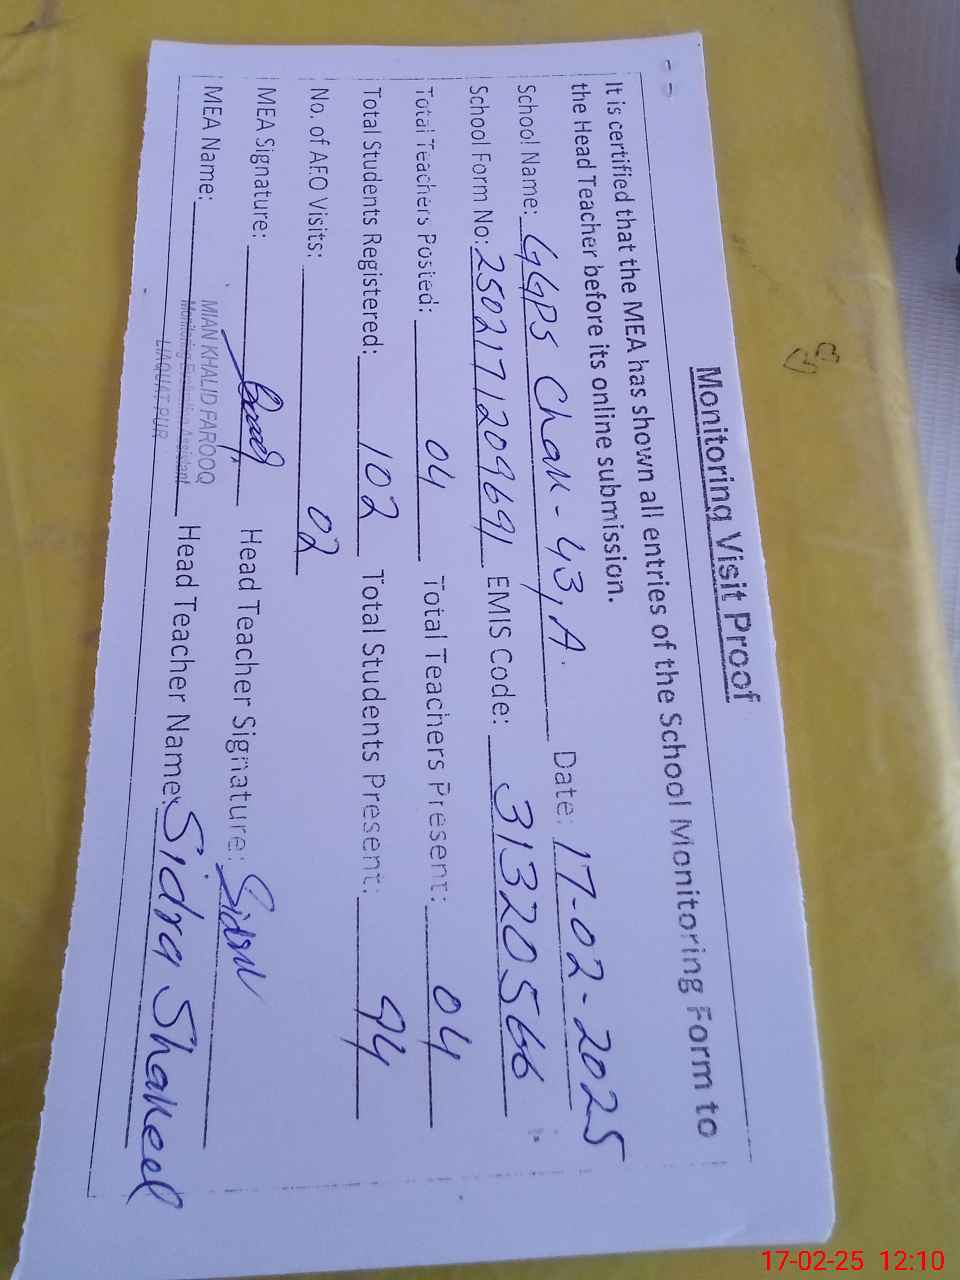 Monitoring Visit Proof
It is certified that the MEA has shown all entries of the School Monitoring Form to
the Head Teacher before its online submission.
School Name: GGPS Chak-43,A. Date: 17-02-2025
School Form No: 250217120969 EMIS Code: 31320566
Total Teachers Posted: 04 Total Teachers Present: 04
Total Students Registered: 102 Total Students Present: 94
No. of AEO Visits: 02
MEA Signature: Head Teacher Signature: Sidra
MEA Name: MIAN KHALID FAROOQ Head Teacher Name: Sidra Shakeel
Monitoring Evaluation Assistant
LIAQUAT PUR
17-02-25 12:10